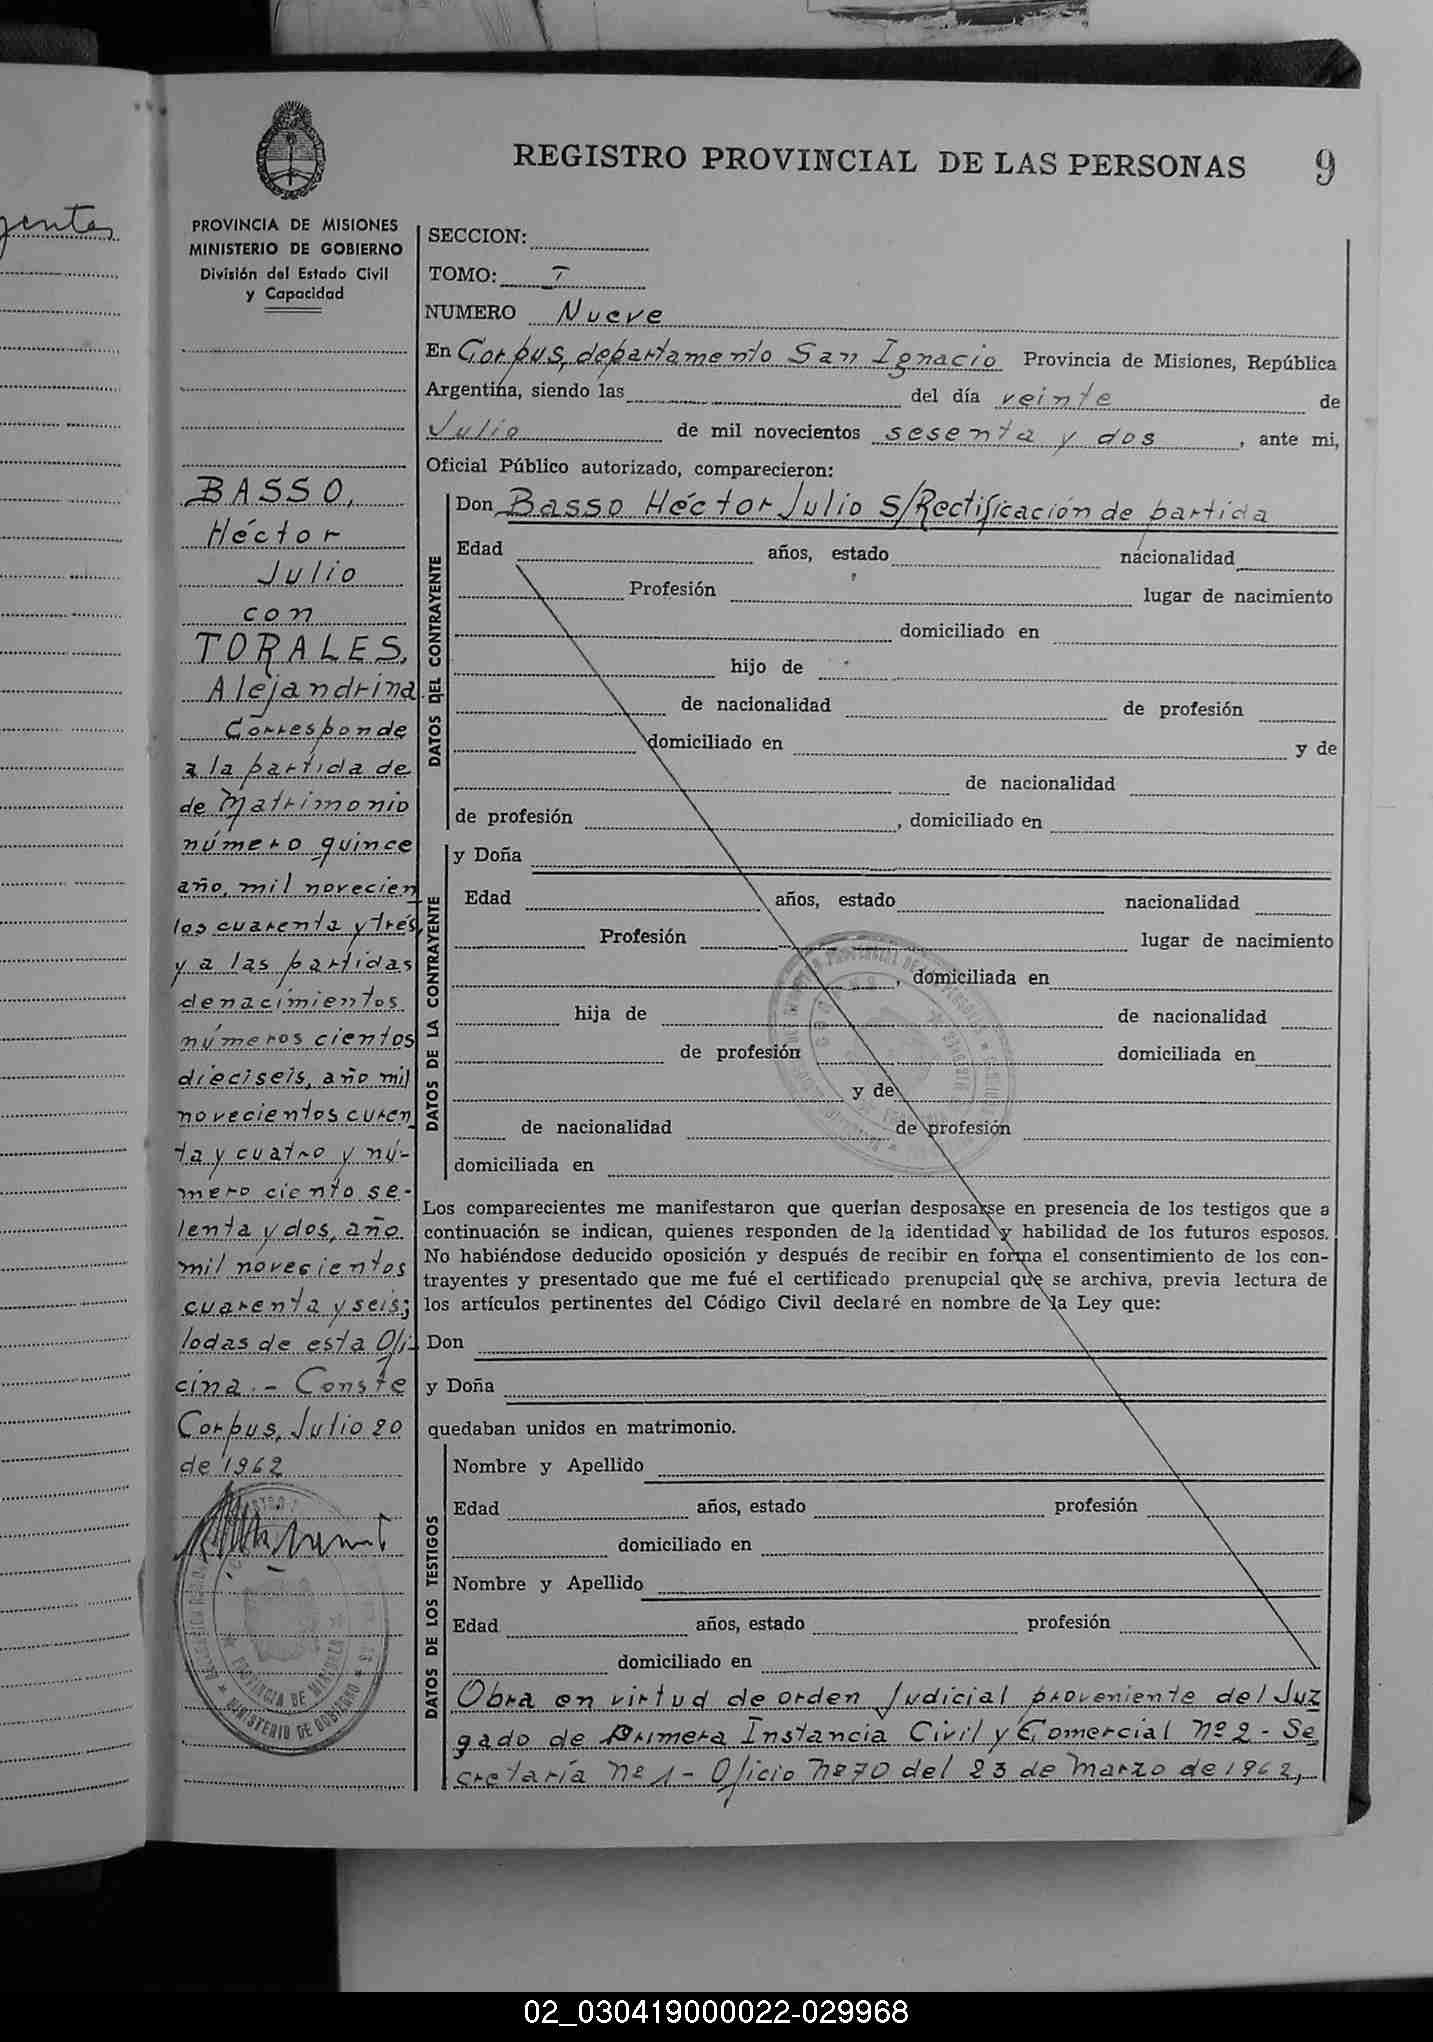 gentes
REGISTRO PROVINCIAL DE LAS PERSONAS 9
PROVINCIA DE MISIONES
MINISTERIO DE GOBIERNO
División del Estado Civil
y Capacidad
BASSO,
Héctor
Julio
con
TORALES,
Alejandrina
Corresponde
a la partida de
de Matrimonio
número quince
año, mil novecien
tos cuarenta y trés,
y a las partidas
de nacimientos
números cientos
dieciseis, año mil
novecientos curen
ta y cuatro y nú-
mero ciento se-
tenta y dos, año
mil novecientos
cuarenta y seis;
todas de esta Ofi-
cina.- Conste
Corpus, Julio 20
de 1962
PROVINCIA DE MISIONES
MINISTERIO DE GOBIERNO
SECCION:
TOMO: I
NUMERO Nueve
En Corpus, departamento San Ignacio Provincia de Misiones, República
Argentina, siendo las del día veinte de
Julio de mil novecientos sesenta y dos, ante mi,
Oficial Público autorizado, comparecieron:
DATOS DEL CONTRAYENTE
Don Basso Héctor Julio S/Rectificación de partida
Edad años, estado nacionalidad
Profesión lugar de nacimiento
domiciliado en
hijo de
de nacionalidad de profesión
domiciliado en y de
de nacionalidad
de profesión , domiciliado en
DATOS DE LA CONTRAYENTE
y Doña
Edad años, estado nacionalidad
Profesión lugar de nacimiento
, domiciliada en
hija de de nacionalidad
de profesión domiciliada en
y de
de nacionalidad de profesión
domiciliada en
Los comparecientes me manifestaron que querían desposarse en presencia de los testigos que a
continuación se indican, quienes responden de la identidad y habilidad de los futuros esposos.
No habiéndose deducido oposición y después de recibir en forma el consentimiento de los con-
trayentes y presentado que me fué el certificado prenupcial que se archiva, previa lectura de
los artículos pertinentes del Código Civil declaré en nombre de la Ley que:
Don
y Doña
quedaban unidos en matrimonio.
DATOS DE LOS TESTIGOS
Nombre y Apellido
Edad años, estado profesión
domiciliado en
Nombre y Apellido
Edad años, estado profesión
domiciliado en
Obra en virtud de orden Judicial proveniente del Juz
gado de Primera Instancia Civil y Comercial Nº 2 - Se
cretaría Nº 1 - Oficio Nº 70 del 23 de Marzo de 1962,
02_030419000022-029968